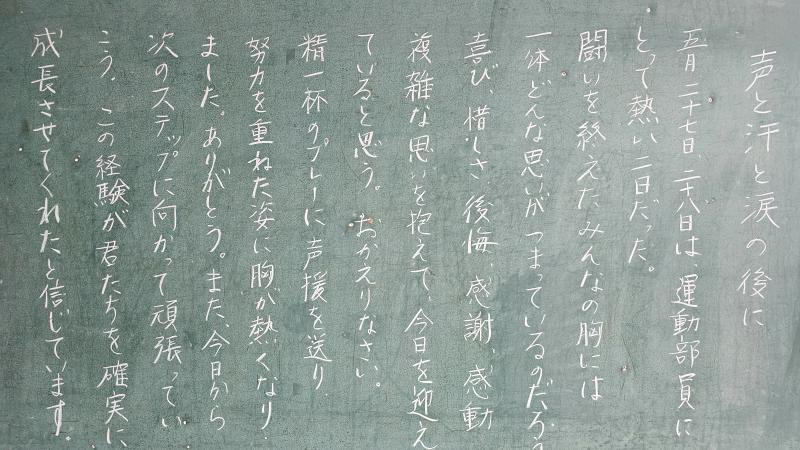 声と汗と涙の後に
五月二十七日、二十八日は、運動部員に
とって熱い二日だった。
闘いを終えたみんなの胸には
一体どんな思いがつまっているのだろう
喜び、惜しさ、後悔、感謝、感動
複雑な思いを抱えて、今日を迎え
ていると思う。おかえりなさい。
精一杯のプレーに声援を送り、
努力を重ねた姿に胸が熱くなり、
ました。ありがとう。また、今日から
次のステップに向かって頑張ってい
こう。この経験が君たちを確実に、
成長させてくれたと信じています。